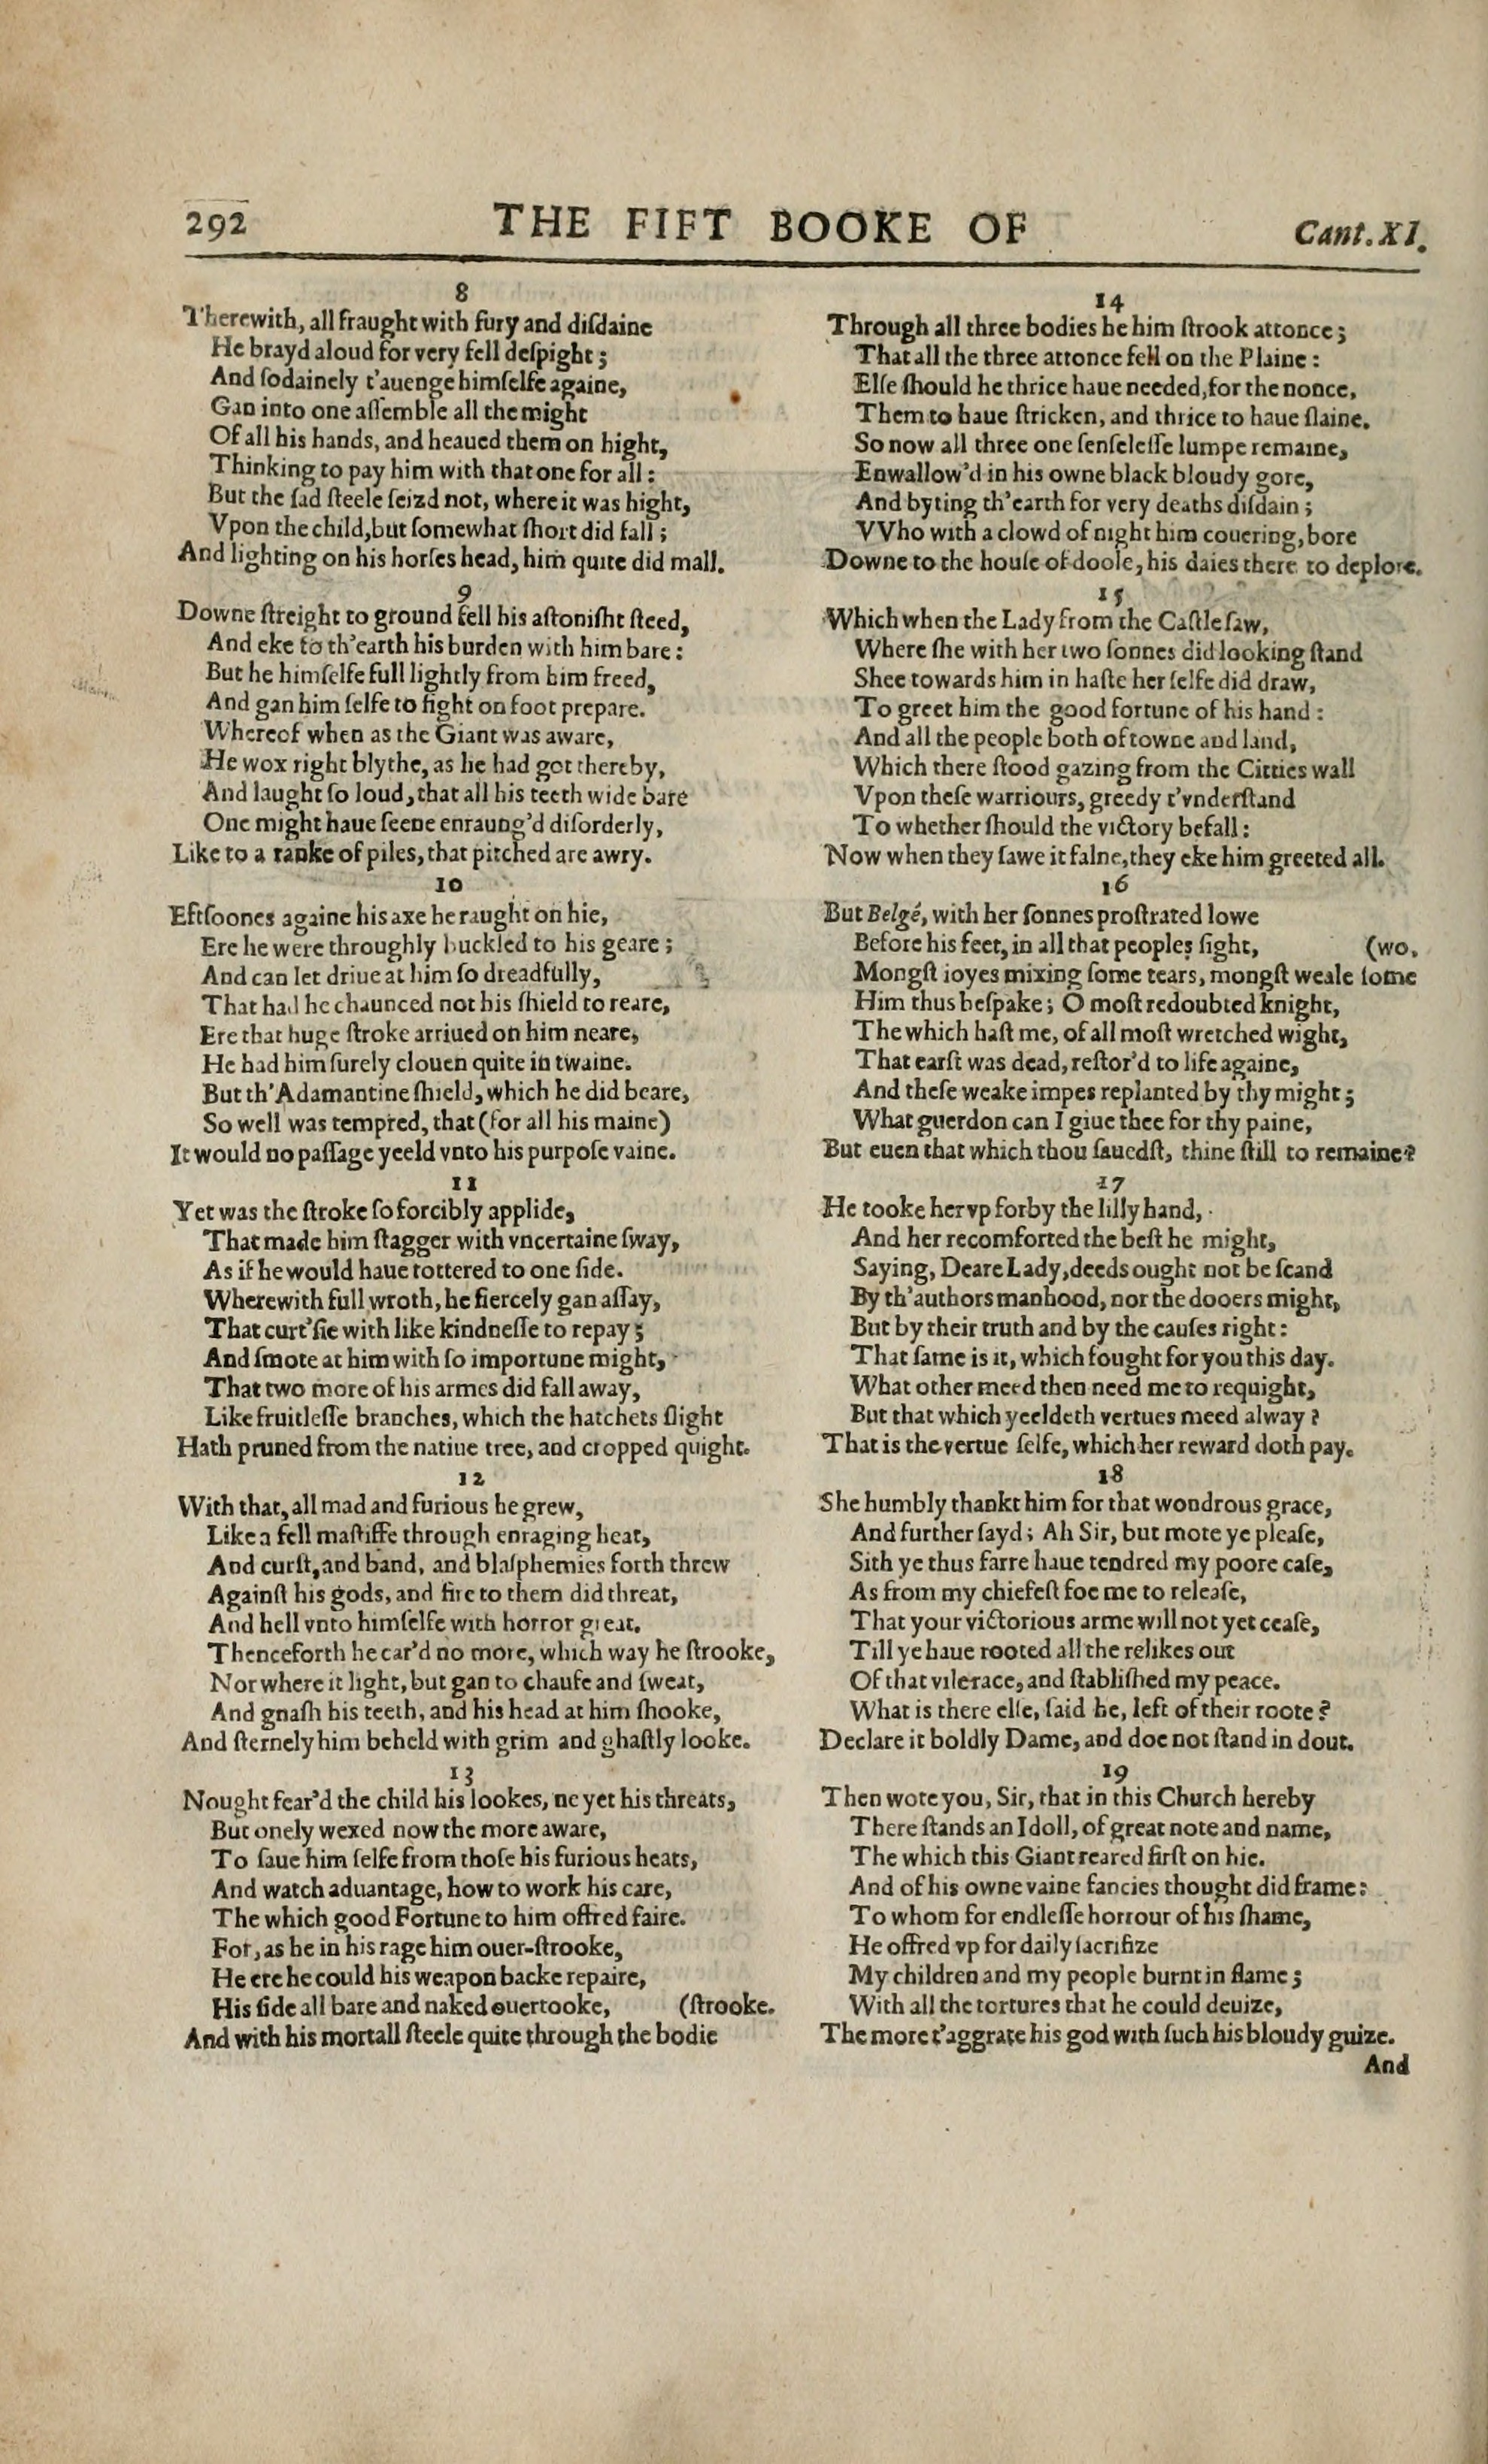 292 THE FIFT BOOKE OF Cant.XI.
8
Therewith, all fraught with fury and diſdaine
He brayd aloud for very fell deſpight;
And ſodainely t'auenge himſelfe againe,
Gan into one aſſemble all the might
Of all his hands, and heaued them on hight,
Thinking to pay him with that one for all:
But the ſad ſteele ſeizd not, where it was hight,
Vpon the child, but ſomewhat ſhort did fall;
And lighting on his horſes head, him quite did mall.
9
Downe ſtreight to ground fell his aſtoniſht ſteed,
And eke to th'earth his burden with him bare:
But he himſelfe full lightly from him freed,
And gan him ſelfe to fight on foot prepare.
Whereof when as the Giant was aware,
He wox right blythe, as he had got thereby,
And laught ſo loud, that all his teeth wide bare
One might haue ſeene enraung'd diſorderly,
Like to a ranke of piles, that pitched are awry.
10
Eftſoones againe his axe he raught on hie,
Ere he were throughly buckled to his geare;
And can let driue at him ſo dreadfully,
That had he chaunced not his ſhield to reare,
Ere that huge ſtroke arriued on him neare,
He had him ſurely clouen quite in twaine.
But th'Adamantine ſhield, which he did beare,
So well was tempred, that (for all his maine)
It would no paſſage yeeld vnto his purpoſe vaine.
11
Yet was the ſtroke ſo forcibly applide,
That made him ſtagger with vncertaine ſway,
As if he would haue tottered to one ſide.
Wherewith full wroth, he fiercely gan aſſay,
That curt'ſie with like kindneſſe to repay;
And ſmote at him with ſo importune might,
That two more of his armes did fall away,
Like fruitleſſe branches, which the hatchets ſlight
Hath pruned from the natiue tree, and cropped quight.
12
With that, all mad and furious he grew,
Like a fell maſtiffe through enraging heat,
And curſt, and band, and blaſphemies forth threw
Againſt his gods, and fire to them did threat,
And hell vnto himſelfe with horror great.
Thenceforth he car'd no more, which way he ſtrooke,
Nor where it light, but gan to chaufe and ſweat,
And gnaſh his teeth, and his head at him ſhooke,
And ſternely him beheld with grim and ghaſtly looke.
13
Nought fear'd the child his lookes, ne yet his threats,
But onely wexed now the more aware,
To ſaue him ſelfe from thoſe his furious heats,
And watch aduantage, how to work his care,
The which good Fortune to him offred faire.
For, as he in his rage him ouer-ſtrooke,
He ere he could his weapon backe repaire,
His ſide all bare and naked ouertooke, (ſtrooke.
And with his mortall ſteele quite through the bodie
14
Through all three bodies he him ſtrook attonce;
That all the three attonce fell on the Plaine:
Elſe ſhould he thrice haue needed, for the nonce,
Them to haue ſtricken, and thrice to haue ſlaine.
So now all three one ſenſeleſſe lumpe remaine,
Enwallow'd in his owne black bloudy gore,
And byting th'earth for very deaths diſdain;
VVho with a clowd of night him couering, bore
Downe to the houſe of doole, his daies there to deplore.
15
Which when the Lady from the Caſtle ſaw,
Where ſhe with her two ſonnes did looking ſtand
Shee towards him in haſte her ſelfe did draw,
To greet him the good fortune of his hand:
And all the people both of towne and land,
Which there ſtood gazing from the Citties wall
Vpon theſe warriours, greedy t'vnderſtand
To whether ſhould the victory befall:
Now when they ſawe it falne, they eke him greeted all.
16
But Belgé, with her ſonnes proſtrated lowe
Before his feet, in all that peoples ſight, (wo,
Mongſt ioyes mixing ſome tears, mongſt weale ſome
Him thus beſpake; O moſt redoubted knight,
The which haſt me, of all moſt wretched wight,
That earſt was dead, reſtor'd to life againe,
And theſe weake impes replanted by thy might;
What guerdon can I giue thee for thy paine,
But euen that which thou ſauedſt, thine ſtill to remaine?
17
He tooke her vp forby the lilly hand,
And her recomforted the beſt he might,
Saying, Deare Lady, deeds ought not be ſcand
By th'authors manhood, nor the dooers might,
But by their truth and by the cauſes right:
That ſame is it, which fought for you this day.
What other meed then need me to requight,
But that which yeeldeth vertues meed alway?
That is the vertue ſelfe, which her reward doth pay.
18
She humbly thankt him for that wondrous grace,
And further ſayd; Ah Sir, but mote ye pleaſe,
Sith ye thus farre haue tendred my poore caſe,
As from my chiefeſt foe me to releaſe,
That your victorious arme will not yet ceaſe,
Till ye haue rooted all the relikes out
Of that vile race, and ſtabliſhed my peace.
What is there elſe, ſaid he, left of their roote?
Declare it boldly Dame, and doe not ſtand in dout.
19
Then wote you, Sir, that in this Church hereby
There ſtands an Idoll, of great note and name,
The which this Giant reared firſt on hie.
And of his owne vaine fancies thought did frame:
To whom for endleſſe horrour of his ſhame,
He offred vp for daily ſacrifize
My children and my people burnt in flame;
With all the tortures that he could deuize,
The more t'aggrate his god with ſuch his bloudy guize.
And